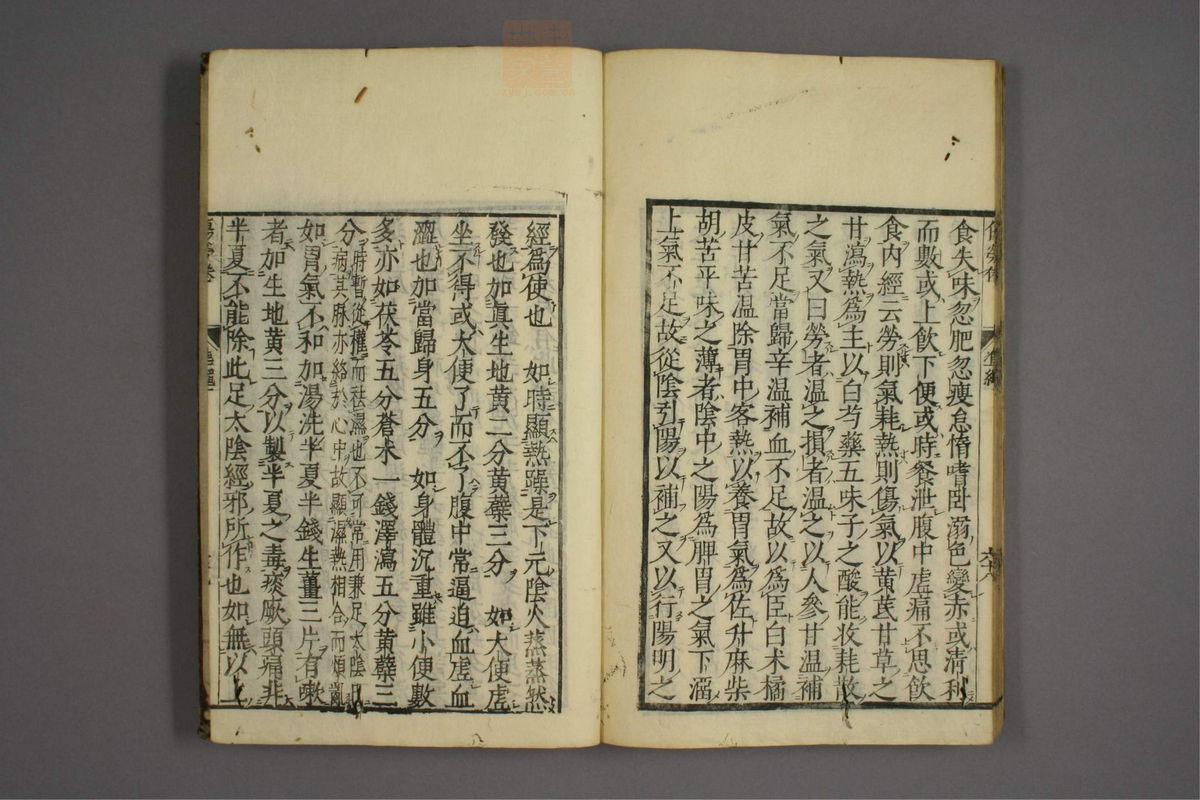 食失味忽肥忽瘦怠惰嗜卧溺色變赤或清利
而數或上飲下便或時飱泄腹中虚痛不思飲
食内經云勞則氣耗熱則傷氣以黄茋甘草之
甘瀉熱爲主以白芍藥五味子之酸能收耗散
之氣又曰勞者温之損者温之以人參甘温補
氣不足當歸辛温補血不足故以爲臣白术橘
皮甘苦温除胃中客熱以養胃氣爲佐升麻柴
胡苦平味之薄者陰中之陽爲脾胃之氣下溜
上氣不足故從陰引陽以補之又以行陽明之
經爲使也 如時顯熱躁是下元陰火蒸蒸然
發也加眞生地黄二分黄蘗三分 如大便虚
坐不得或大便了而不了腹中常逼迫血虚血
澀也加當歸身五分 如身體沉重雖小便數
多亦如茯苓五分蒼术一錢澤瀉五分黄蘗三
分
時暫從權而祛濕也不可常用兼足太陰
病其脉亦絡於心中故顯濕熱相合而煩亂
如胃氣不和加湯洗半夏半錢生薑三片有嗽
者加生地黄三分以製半夏之毒痰厥頭痛非
半夏不能除此足太陰經邪所作也如無以上